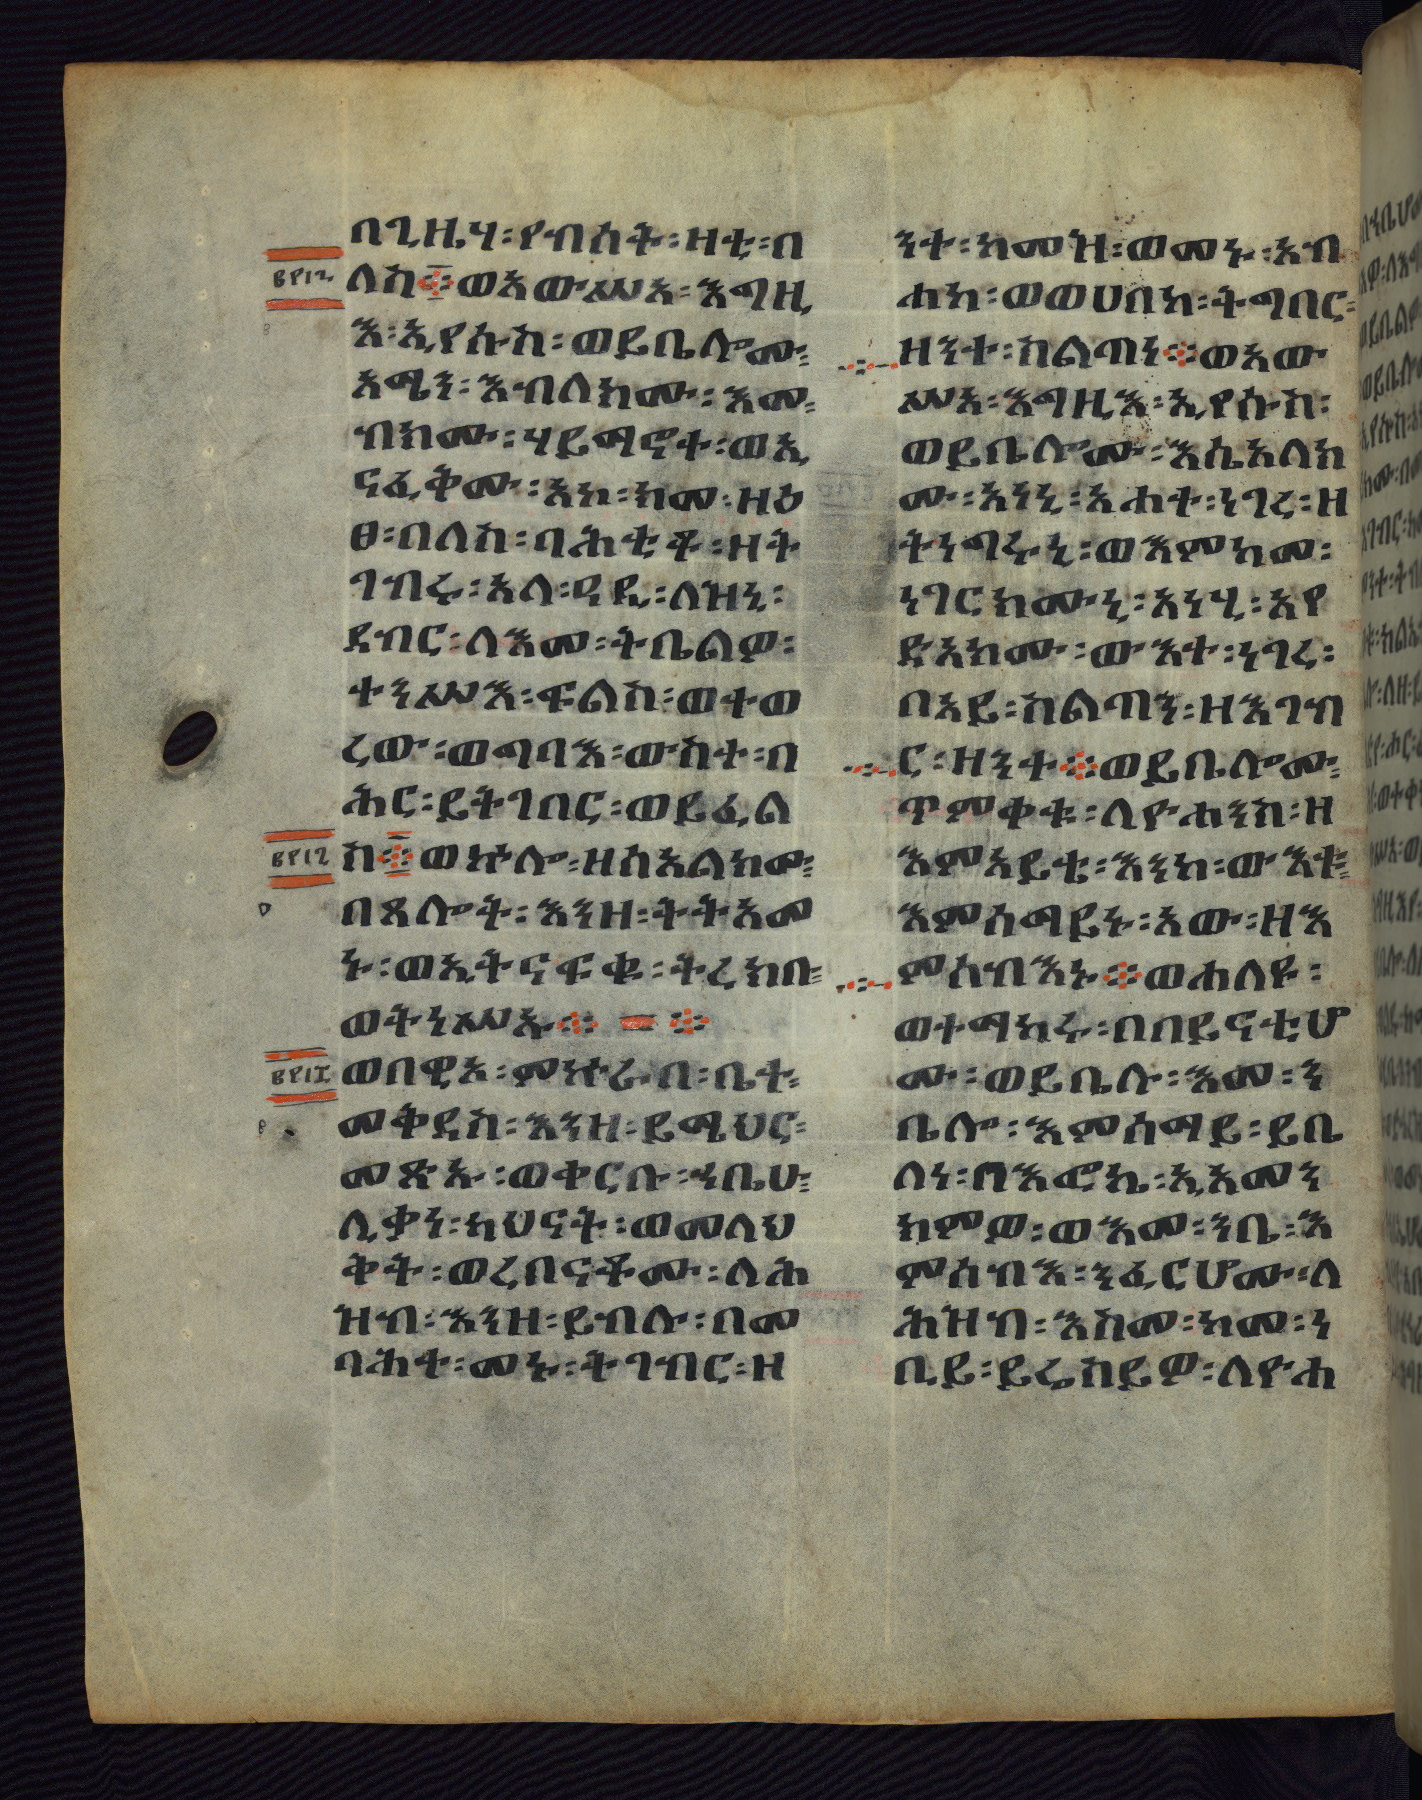 በጊዜሃ፡የብሰት፡ዛቲ፡በ
ለስ፨ወአውሥአ፡እግዚ
እ፡ኢየሱስ፡ወይቤሎሙ፡
አማን፡እብለክሙ፡እመ፡
ብክሙ፡ሃይማኖተ፡ወኢ
ናፈቅሙ፡አኮ፡ከመ፡ዘዕ
ፀ፡በለስ፡ባሕቲቶ፡ዘት
ገብሩ፡አላ፡ዓዲ፡ለዝኒ፡
ደብር፡ለእመ፡ትቤልዎ፡
ተንሥእ፡ፍልስ፡ወተወ
ረው፡ወግባእ፡ውስተ፡በ
ሕር፡ይትገበር፡ወይፈል
ስ፨ወኵሎ፡ዘሰአልክሙ፡
በጸሎት፡እንዘ፡ትትአመ
ኑ፡ወኢትናፍቁ፡ትረክቡ፡
ወትነሥኡ፨ ፨
ወበዊአ፡ምኵራበ፡ቤተ፡
መቅደስ፡እንዘ፡ይሜህር፡
መጽኡ፡ወቀርቡ፡ኀቤሁ፡
ሊቃነ፡ካህናት፡ወመላህ
ቅት፡ወረበናቶሙ፡ለሕ
ዝብ፡እንዘ፡ይብሉ፡በመ
ባሕተ፡መኑ፡ትገብር፡ዘ
ንተ፡ከመዝ፡ወመኑ፡አብ
ሐከ፡ወወሀበከ፡ትግበር፡
ዘንተ፡ስልጣነ፨ወአው
ሥአ፡እግዚእ፡ኢየሱስ፡
ወይቤሎሙ፡እሴአለክ
ሙ፡አነኒ፡አሐተ፡ነገረ፡ዘ
ትነግሩኒ፡ወእምከመ፡
ነገርክሙኒ፡አነሂ፡አየ
ድአክሙ፡ውእተ፡ነገረ፡
በአይ፡ስልጣን፡ዘእገብ
ር፡ዘንተ፨ወይቤሎሙ፡
ጥምቀቱ፡ለዮሐንስ፡ዘ
እምአይቴ፡እንከ፡ውእቱ፡
እምሰማይኑ፡አው፡ዘእ
ምሰብእኑ፨ወሐለዩ፡
ወተማከሩ፡በበይናቲሆ
ሙ፡ወይቤሉ፡እመ፡ን
ቤሎ፡እምሰማይ፡ይቤ
ለነ፡ለምእኖኬ፡ኢአመን
ክምዎ፡ወእመ፡ንቤ፡እ
ምሰብእ፡ንፈርሆሙ፡ለ
ሕዝብ፡እስመ፡ከመ፡ነ
ቢይ፡ይሬስይዎ፡ለዮሐ